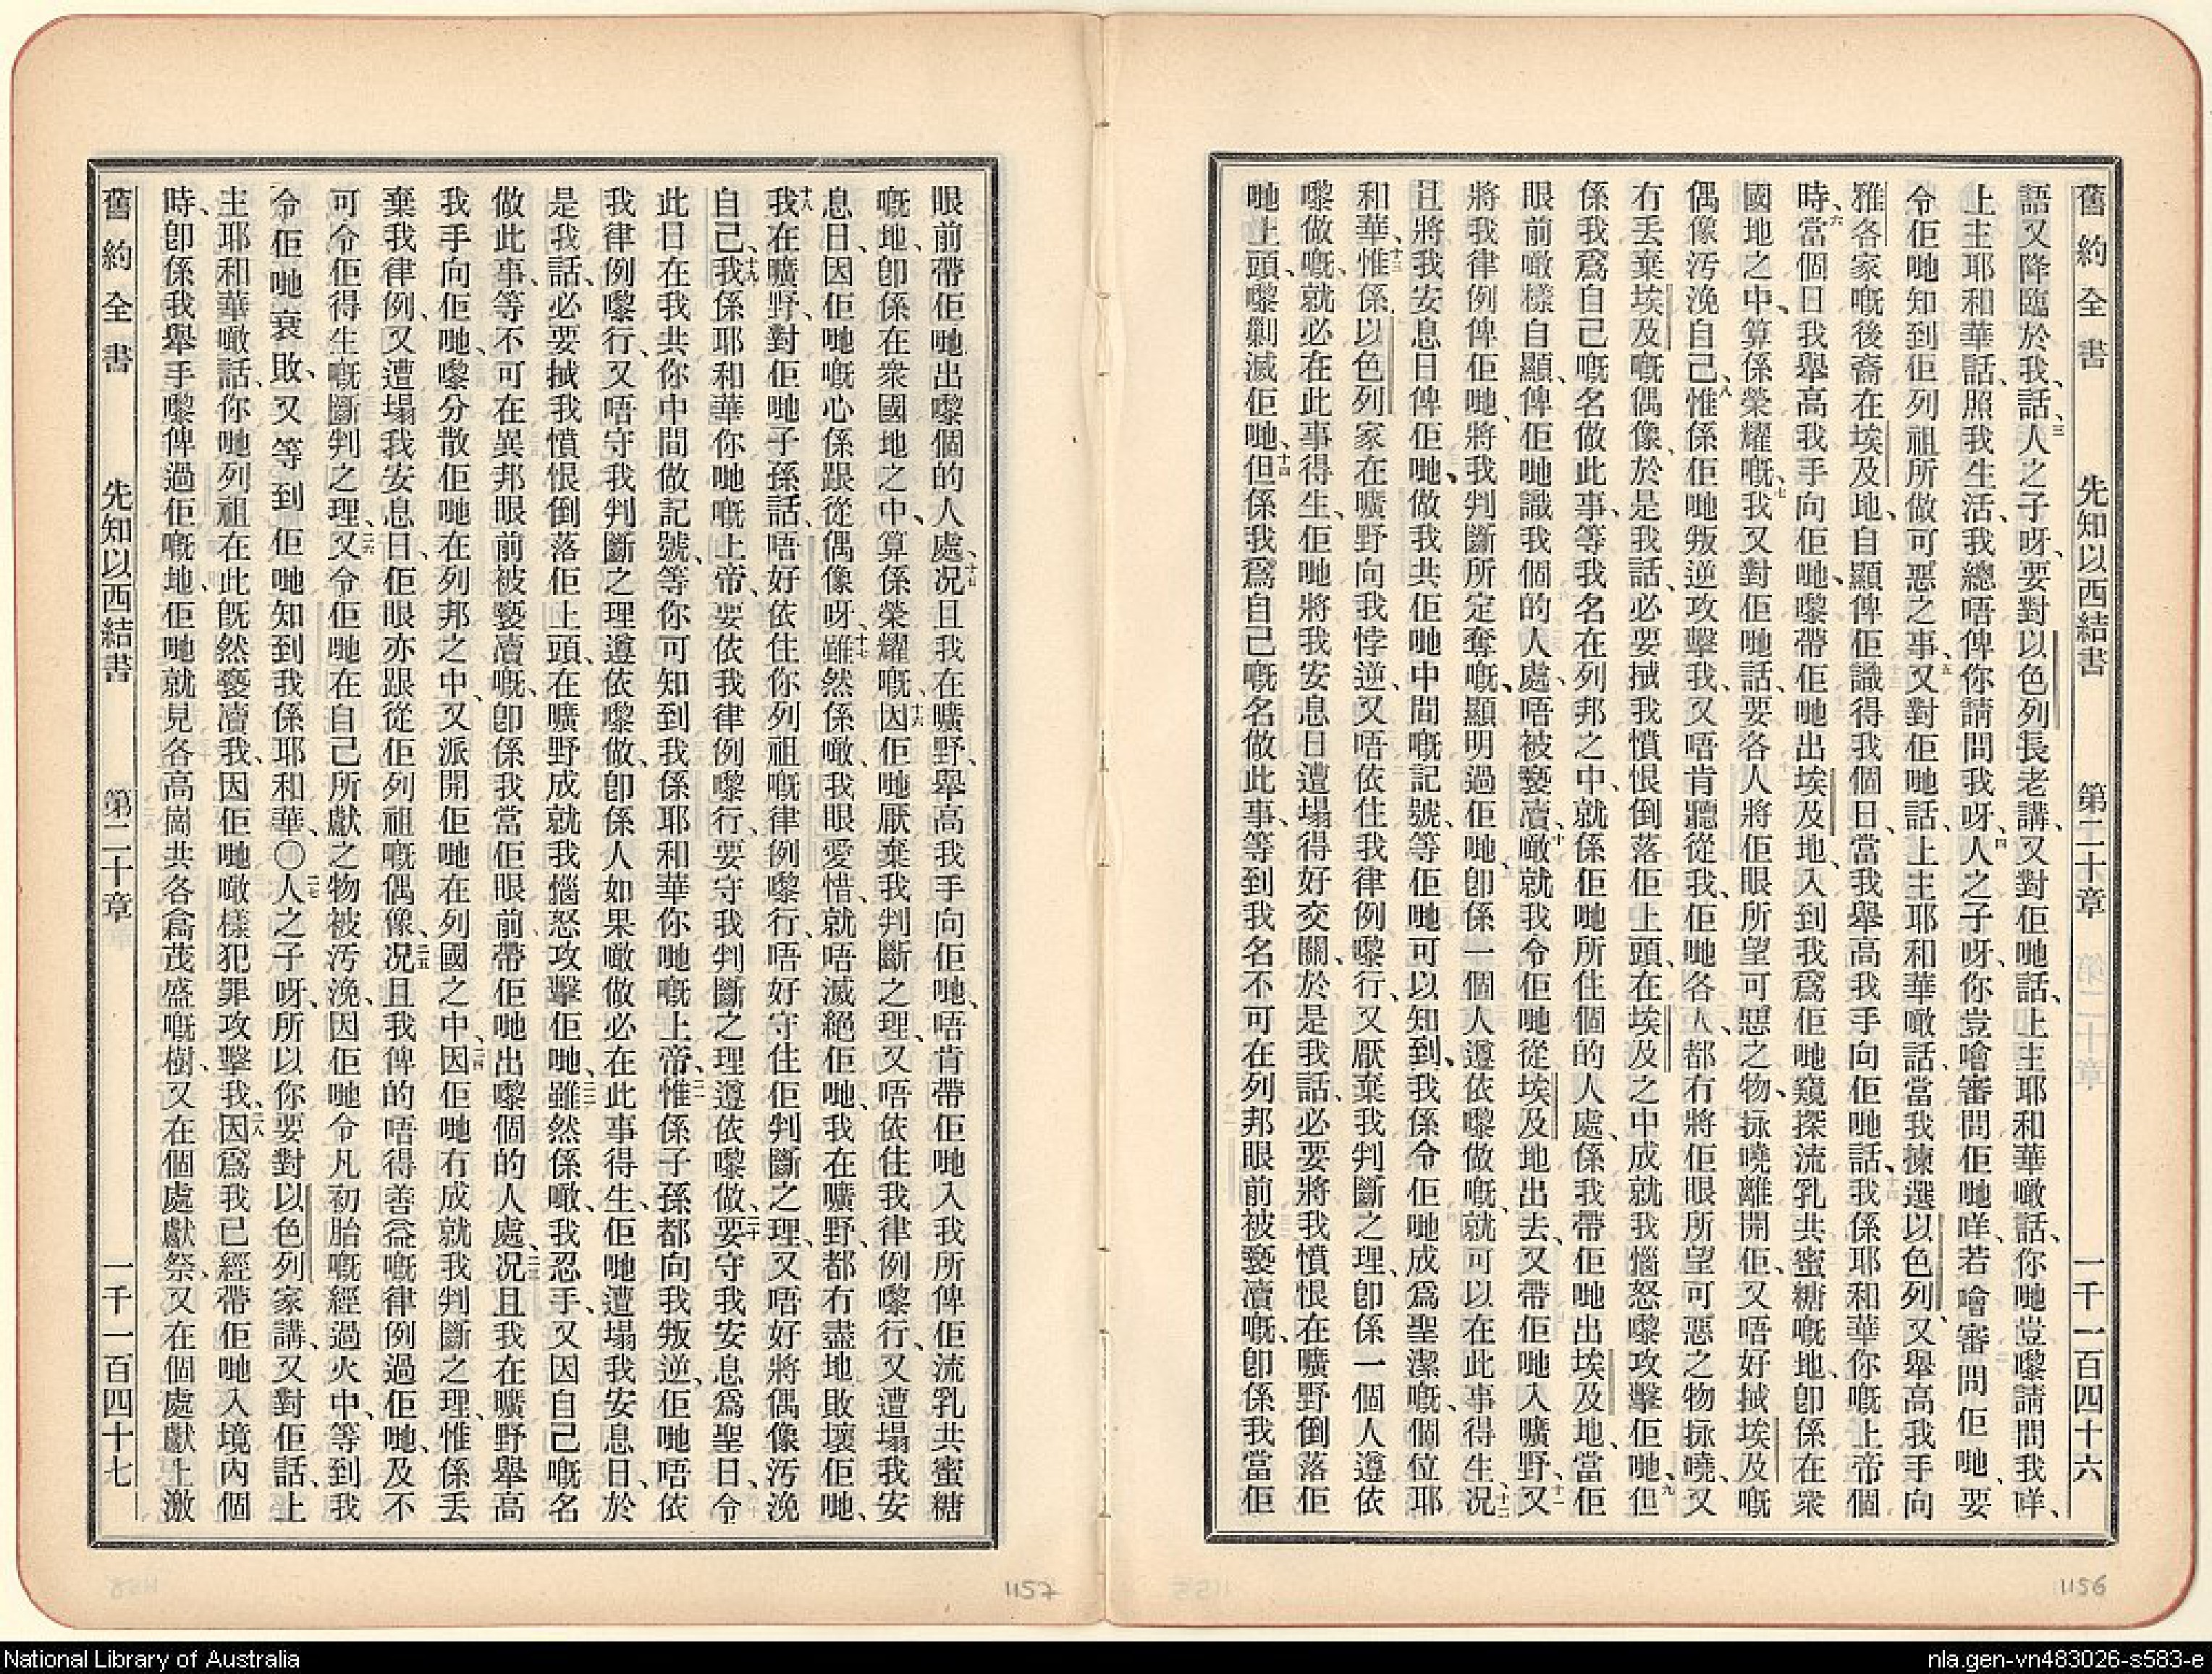 舊約全書 先知以西結書 第二十章 一千一百四十六
語又降臨於我、話、三人之子呀、要對以色列長老講、又對佢哋話、上主耶和華噉話、你哋豈嚟請問我咩、
上主耶和華話、照我生活、我總唔俾你請問我呀、四人之子呀、你豈噲審問佢哋咩、若噲審問佢哋、要
令佢哋知到佢列祖所做可惡之事、五又對佢哋話、上主耶和華噉話、當我揀選以色列、又舉高我手向
雅各家嘅後裔在埃及地、自顯俾佢識得我個日、當我舉高我手向佢哋話、我係耶和華你嘅上帝個
時、六當個日我舉高我手向佢哋、嚟帶佢哋出埃及地、入到我爲佢哋窺探流乳共蜜糖嘅地、卽係在衆
國地之中、算係榮耀嘅、七我又對佢哋話、要各人將佢眼所望可惡之物、㧒嘵離開佢、又唔好攪埃及嘅
偶像汚浼自己、八惟係佢哋叛逆攻擊我、又唔肯聽從我、佢哋各人、都冇將佢眼所望可惡之物㧒嘵、又
冇丟棄埃及嘅偶像、於是我話、必要揼我憤恨倒落佢上頭、在埃及之中成就我惱怒嚟攻擊佢哋、九但
係我爲自己嘅名做此事、等我名在列邦之中、就係佢哋所住個的人處、係我帶佢哋出埃及地、當佢
眼前噉樣自顯、俾佢哋識我個的人處、唔被褻瀆、十噉就我令佢哋從埃及地出去、又帶佢哋入曠野、十一又
將我律例俾佢哋、將我判斷所定奪嘅、顯明過佢哋、卽係一個人遵依嚟做嘅、就可以在此事得生、十二况
且將我安息日俾佢哋、做我共佢哋中間嘅記號、等佢哋可以知到、我係令佢哋成爲聖潔嘅、個位耶
和華、十三惟係以色列家在曠野向我悖逆、又唔依住我律例嚟行、又厭棄我判斷之理、卽係一個人遵依
嚟做嘅、就必在此事得生、佢哋將我安息日遭塌得好交關、於是我話、必要將我憤恨在曠野倒落佢
哋上頭、嚟剿滅佢哋、十四但係我爲自己嘅名做此事、等到我名不可在列邦眼前被褻瀆嘅、卽係我當佢
1156
眼前帶佢哋出嚟個的人處、十五况且我在曠野、舉高我手向佢哋、唔肯帶佢哋入我所俾佢流乳共蜜糖
嘅地、卽係在衆國地之中、算係榮耀嘅、十六因佢哋厭棄我判斷之理、又唔依住我律例嚟行、又遭塌我安
息日、因佢哋嘅心係跟從偶像呀、十七雖然係噉、我眼愛惜、就唔滅絕佢哋、我在曠野、都冇盡地敗壞佢哋、
十八我在曠野、對佢哋子孫話、唔好依住你列祖嘅律例嚟行、唔好守住佢判斷之理、又唔好將偶像汚浼
自己、十九我係耶和華你哋嘅上帝、要依我律例嚟行、要守我判斷之理遵依嚟做、二十要守我安息爲聖日、令
此日在我共你中間做記號、等你可知到我係耶和華你哋嘅上帝、二一惟係子孫都向我叛逆、佢哋唔依
我律例嚟行、又唔守我判斷之理遵依嚟做、卽係人如果噉做必在此事得生、佢哋遭塌我安息日、於
是我話、必要揼我憤恨倒落佢上頭、在曠野成就我惱怒攻擊佢哋、二二雖然係噉、我忍手、又因自己嘅名
做此事、等不可在異邦眼前被褻瀆嘅、卽係我當佢眼前帶佢哋出嚟個的人處、二三况且我在曠野舉高
我手向佢哋、嚟分散佢哋在列邦之中、又派開佢哋在列國之中、二四因佢哋冇成就我判斷之理、惟係丟
棄我律例、又遭塌我安息日、佢眼亦跟從佢列祖嘅偶像、二五况且我俾的唔得善益嘅律例過佢哋、及不
可令佢得生嘅斷判之理、二六又令佢哋在自己所獻之物被汚浼、因佢哋令凡初胎嘅經過火中、等到我
令佢哋衰敗、又等到佢哋知到我係耶和華、〇二七人之子呀、所以你要對以色列家講、又對佢話、上
主耶和華噉話、你哋列祖在此旣然褻瀆我、因佢哋噉樣犯罪攻擊我、二八因爲我已經帶佢哋入境內個
時、卽係我舉手嚟俾過佢嘅地、佢哋就見各高崗共各翕茂盛嘅樹、又在個處獻祭、又在個處獻上激
舊約全書 先知以西結書 第二十章 一千一百四十七
1157
National Library of Australia
nla.gen-vn483026-s583-e